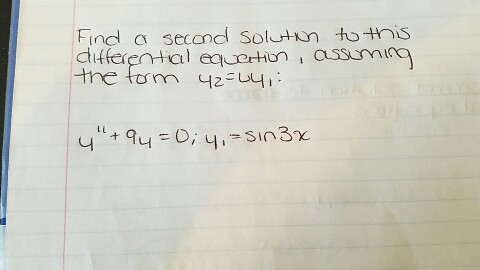 Find a second solution to this
differential equation, assuming
the form y₂=uy₁:
y"+9y=0; y₁=sin3x